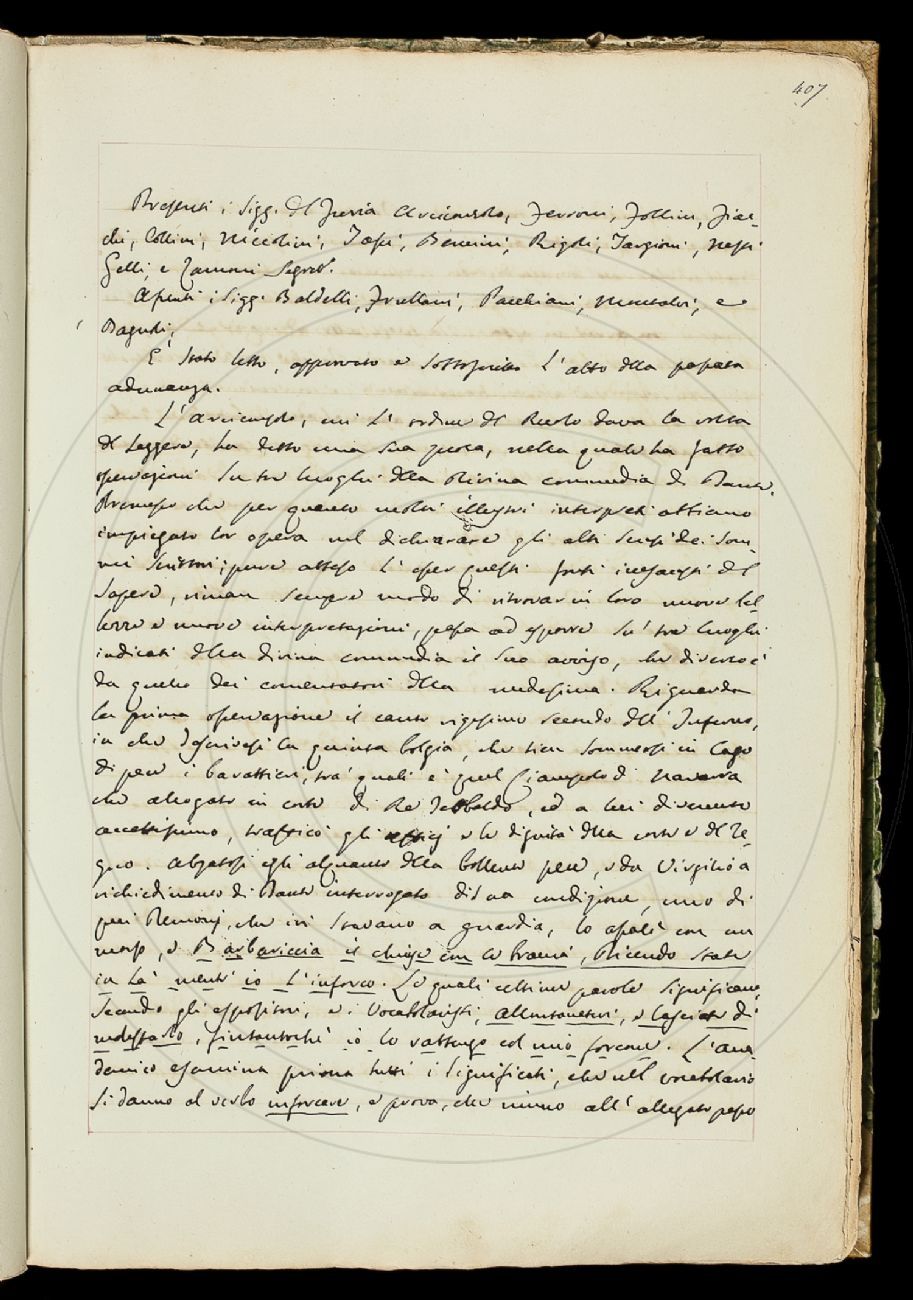 407
Presenti i Sigg. Del Furia Arciconsolo, Ferroni, Follini, Fiac-
chi, Collini, Niccolini, Sarchi, Bencini, Rigoli, Targioni, Nesti
Gelli, e Zannoni Segret.
Assenti i Sigg. Baldelli, Frullani, Pacchiani, Montalvi, e
Bagnoli,
E' stato letto, approvato e sottoscritto l'atto della passata
adunanza.
L'Arciconsolo, cui l'ordine del Ruolo dava la volta
di leggere, ha detto una sua prosa, nella quale ha fatto
osservazioni su tre luoghi della Divina commedia di Dante.
Premesso che per quanto molti illustri interpreti abbiano
impiegato lor opera nel dichiarare gli alti sensi dei som-
mi scrittori; pure atteso l'esser questi fonti inesausti del
sapere, riman sempre modo di ritrovar in loro nuove bel-
lezze e nuove interpretazioni, passa ad esporre su' tre luoghi
indicati della divina commedia il suo avviso, che diverso è
da quello dei comentatori della medesima. Riguarda
la prima osservazione il canto vigesimo secondo dell'Inferno,
in che descrivesi la quinta bolgia, che tien sommersi in lago
di pece i barattieri, tra' quali è quel Ciampolo di Navarra
che allogato in corte di Re Tebaldo, ed a lui divenuto
accettissimo, trafficò gli uffici e le dignità della corte e del re-
gno. Alzatosi egli alquanto della bollente pece, e da Virgilio a
richiedimento di Dante interrogato di sua condizione, uno di
quei Demonj, che ivi stavano a guardia, lo assalì con un
morso, e Barbariccia il chiuse con le braccia, dicendo state
in là mentr' io l'inforco. Le quali ultime parole significano,
secondo gli espositori, e i Vocabolaristi, allontanatevi, e lasciate di
molestarlo, fintantochè io lo rattengo col mio forcone. L'Acca-
demico esamina prima tutti i significati, che nel vocabolario
si danno al verbo inforcare, e prova, che niuno all'allegato passo